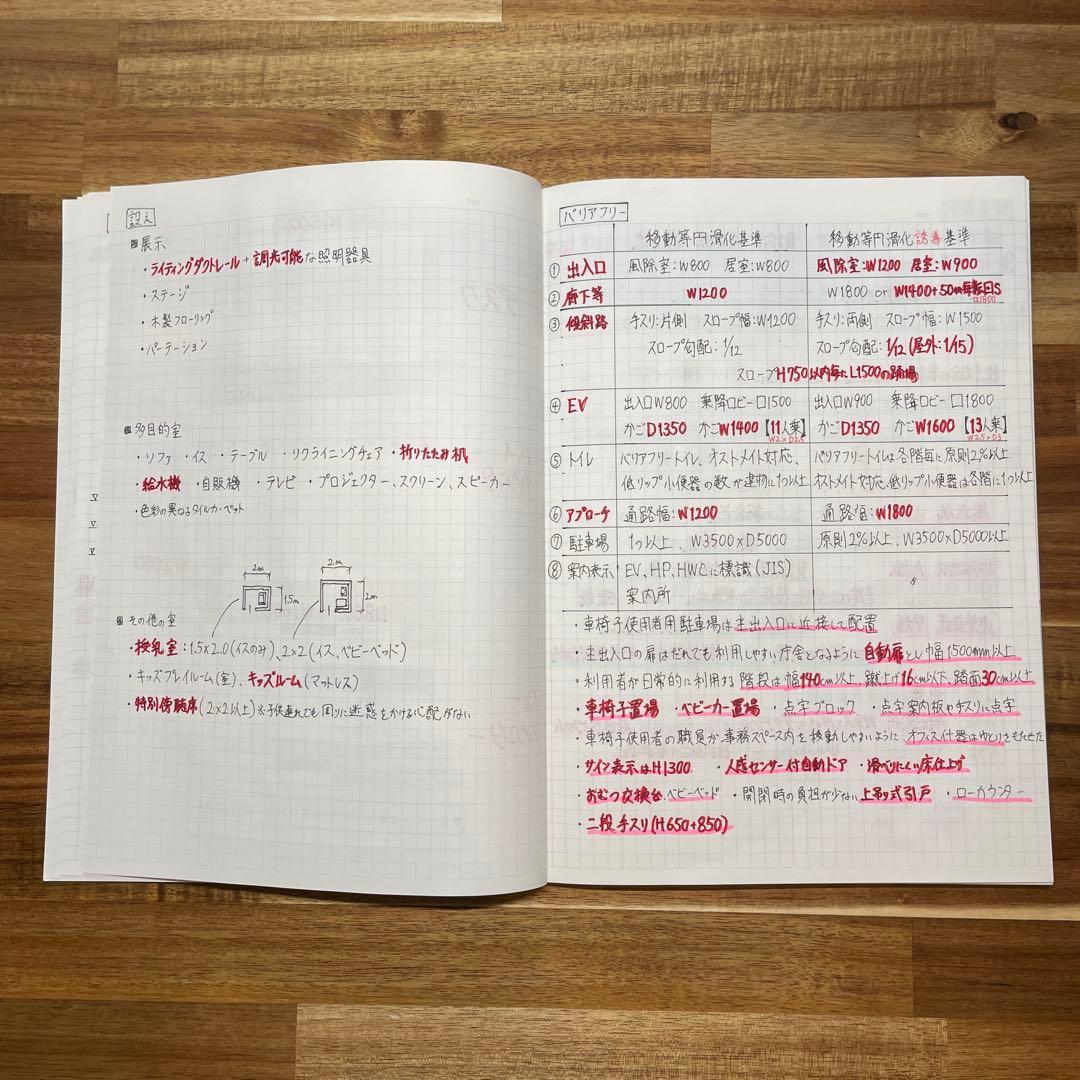 設え
展示
・ライティングダクトレール + 調光可能な照明器具
・ステージ
・木製フローリング
・パーテーション
多目的室
・ソファ ・イス ・テーブル ・リクライニングチェア ・折りたたみ机
・給水機 ・自販機 ・テレビ ・プロジェクター、スクリーン、スピーカー
・色彩の異なるタイルカーペット
2m 2m
1.5m 2m
その他の室
・授乳室:1.5×2.0(イスのみ)、2×2(イス、ベビーベッド)
・キッズプレイルーム(室)、キッズルーム(マットレス)
・特別傍聴席(2×2以上)※子供連れでも周りに迷惑をかける心配がない
バリアフリー
移動等円滑化基準 移動等円滑化誘導基準
① 出入口 風除室:W800 居室:W800 風除室:W1200 居室:W900
② 廊下等 W1200 W1800 or W1400+50m毎転回S
□1800
③ 傾斜路 手スリ:片側 スロープ幅:W1200 手スリ:両側 スロープ幅:W1500
スロープ勾配:1/12 スロープ勾配:1/12(屋外:1/15)
スロープH750以内毎にL1500の踊場
④ EV 出入口W800 乗降ロビー□1500 出入口W900 乗降ロビー□1800
かごD1350 かごW1400【11人乗】 かごD1350 かごW1600【13人乗】
W2×D2.5 W2.5×D3
⑤ トイレ バリアフリートイレ、オストメイト対応、 バリアフリートイレは各階毎に原則2%以上
低リップ小便器の数が建物に1つ以上 オストメイト対応、低リップ小便器は各階に1つ以上
⑥ アプローチ 通路幅:W1200 通路幅:W1800
⑦ 駐車場 1つ以上、W3500×D5000 原則2%以上、W3500×D5000以上
⑧ 案内表示 EV、HP、HWCに標識(JIS) 〃
案内所
・車椅子使用者用駐車場は主出入口に近接して配置
・主出入口の扉はだれでも利用しやすい庁舎となるように自動扉とし幅1500mm以上
・利用者が日常的に利用する階段は幅140cm以上、蹴上げ16cm以下、踏面30cm以上
・車椅子置場 ・ベビーカー置場 ・点字ブロック ・点字案内板や手スリに点字
・車椅子使用者の職員が事務スペース内を移動しやすいように、オフィス什器はゆとりをもたせた
・サイン表示はH1300 ・人感センサー付自動ドア ・滑べりにくい床仕上げ
・おむつ交換台、ベビーベッド ・開閉時の負担が少ない上吊り式引戸 ・ローカウンター
・二段手スリ(H650+850)